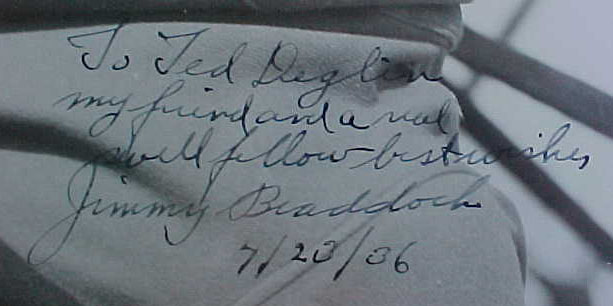 To Ted Deglin
my friend and a real
swell fellow - best wishes
Jimmy Braddock
7/23/36